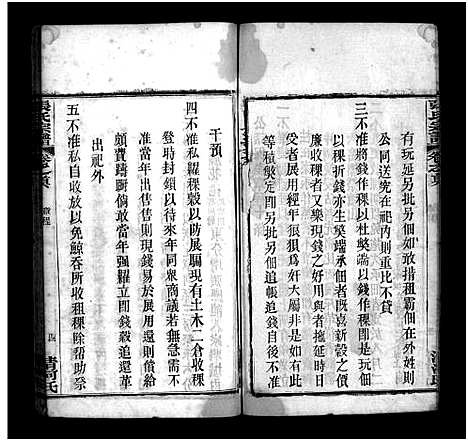 張氏宗譜
有玩延另批另佃如敢措租霸佃在外姓則
公同送究在祀內則重比不貸
三不准將錢作稞以杜獘端以錢作稞聞卽不正
稞以穀折錢亦生獘端承佃者旣喜新穀之價
廉收稞者又樂現錢之好用與者拖延時日
受者展用經年狼狽為奸大屬非是如有此
等積獘定卽另批另佃追帳追錢自後不准
干預
四不准私糶稞穀以防展騙現有土木二倉收稞
登時封鎖以待來年同衆商議若無急需不
准當年出售售則現錢易於展用還則償給
頗費躊厨倘敢當年强糶立卽錢穀追還革
出祀外
五不准私自收放以免鯨吞所收租稞除帮助祭
張氏宗譜
章程
四
清河氏